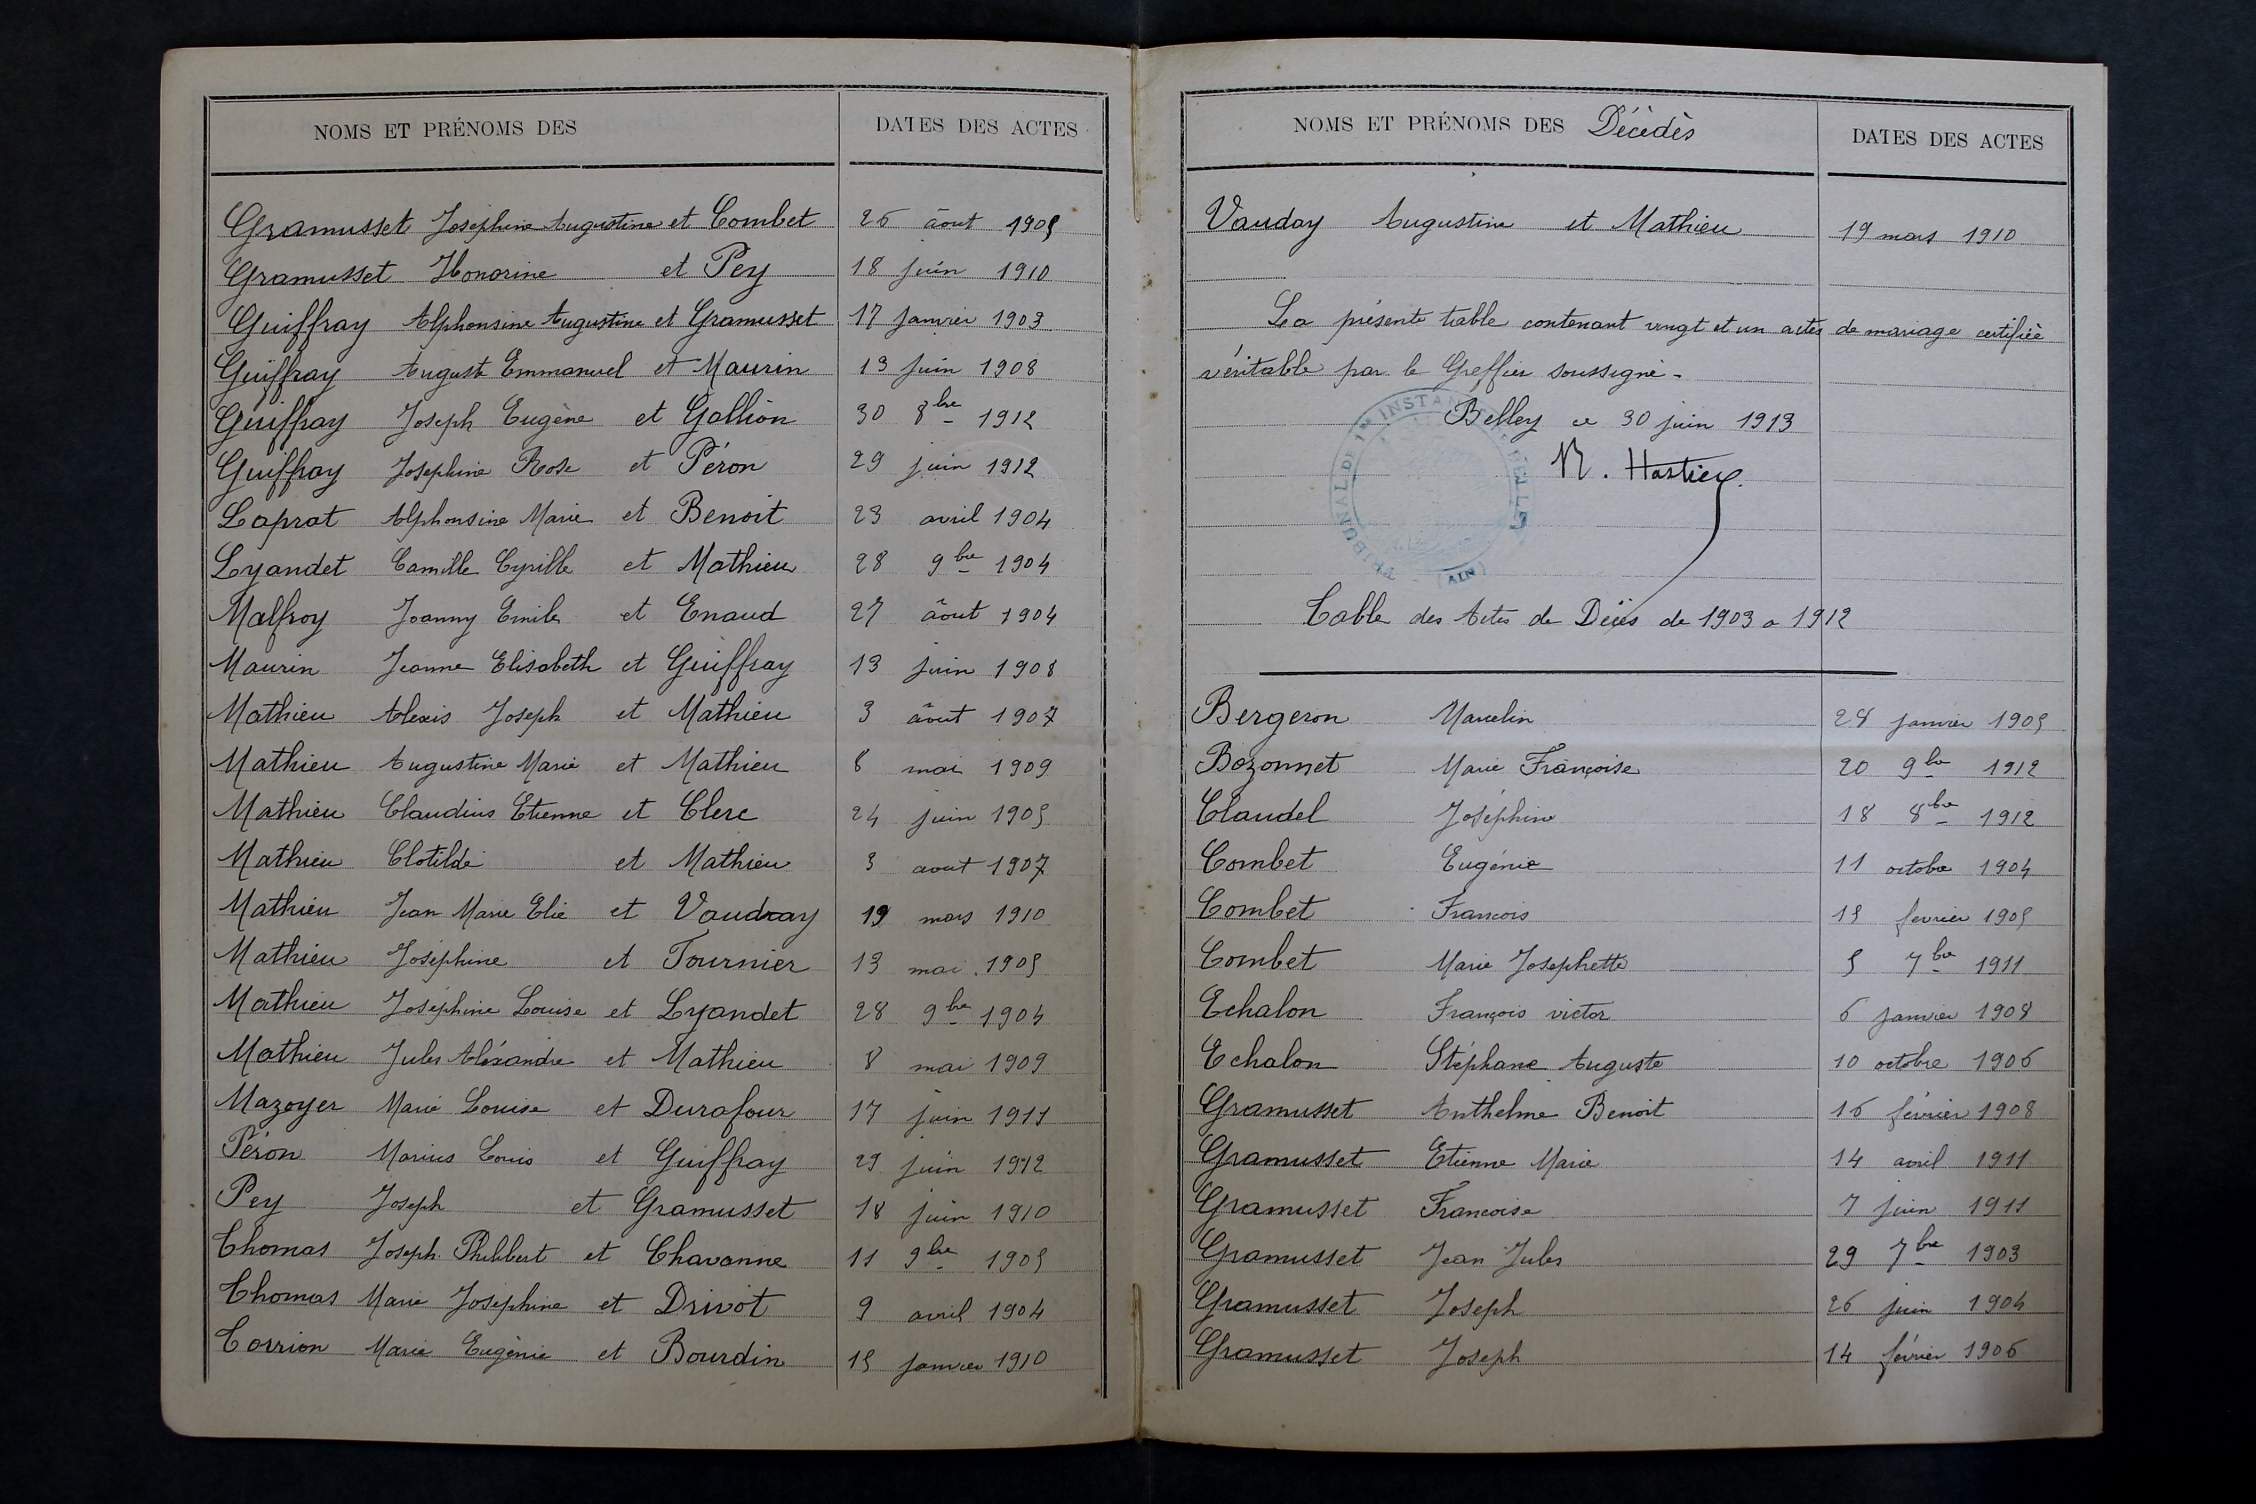 NOMS ET PRÉNOMS DES
DATES DES ACTES
Gramusset Joséphine Augustine et Combet 26 âout 1905
Gramusset Honorine et Pey 18 juin 1910
Guiffray Alphonsine Augustine et Gramusset 17 Janvier 1903
Guiffray Auguste Emmanuel et Maurin 13 juin 1908
Guiffray Joseph Eugène et Gallion 30 8bre 1912
Guiffray Joséphine Rose et Péron 29 juin 1912
Laprat Alphonsine Marie et Benoit 23 avril 1904
Lyandet Camille Cyrille et Mathieu 28 9bre 1904
Malfroy Joanny Emile et Enaud 27 âout 1904
Maurin Jeanne Elisabeth et Guiffray 13 juin 1908
Mathieu Alexis Joseph et Mathieu 3 âout 1907
Mathieu Augustine Marie et Mathieu 8 mai 1909
Mathieu Claudius Etienne et Clerc 24 juin 1905
Mathieu Clotilde et Mathieu 3 aout 1907
Mathieu Jean Marie Elie et Vaudray 19 mars 1910
Mathieu Joséphine et Tournier 13 mai 1905
Mathieu Joséphine Louise et Lyandet 28 9bre 1904
Mathieu Jules Aléxandre et Mathieu 8 mai 1909
Mazoyer Marie Louise et Durafour 17 juin 1911
Péron Marius Louis et Guiffray 29 juin 1912
Pey Joseph et Gramusset 18 juin 1910
Thomas Joseph Philibert et Chavanne 11 9bre 1905
Thomas Marie Joséphine et Drivot 9 avril 1904
Torrion Marie Eugènie et Bourdin 15 janvier 1910
NOMS ET PRÉNOMS DES Décèdès
DATES DES ACTES
Vauday Augustine et Mathieu 19 mars 1910
La présente table contenant vingt et un actes de mariage certifiée
véritable par le Greffier soussigné -
Belley ce 30 juin 1913
TRIBUNAL DE 1re INSTANCE BELLEY (AIN)
N. Hastier
Table des Actes de Décès de 1903 a 1912
Bergeron Marcelin 28 janvier 1905
Bozonnet Marie Françoise 20 9bre 1912
Claudel Joséphine 18 8bre 1912
Combet Eugénie 11 octobre 1904
Combet Francois 15 fevrier 1905
Combet Marie Josephette 5 7bre 1911
Echalon François victor 6 janvier 1908
Echalon Stéphane Auguste 10 octobre 1906
Gramusset Anthelme Benoit 16 février 1908
Gramusset Etienne Marie 14 avril 1911
Gramusset Francoise 7 juin 1911
Gramusset Jean Jules 29 7bre 1903
Gramusset Joseph 26 juin 1904
Gramusset Joseph 14 février 1906